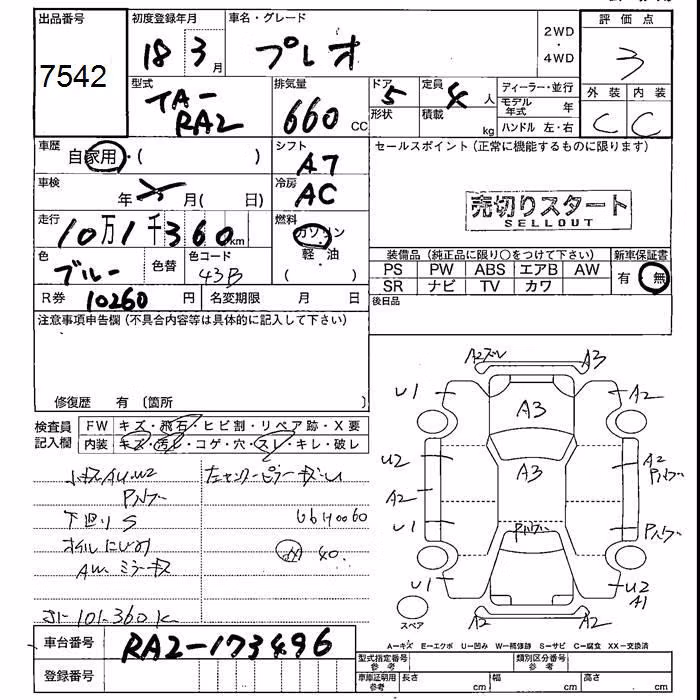 出品番号 初度登録年月 車名・グレード 評価点
7542 18 3月 プレオ 2WD・4WD 3
型式 排気量 ドア 5 定員 4人 ディーラー・並行 外装 内装
TA-RA2 660 CC 形状 積載 kg モデル年式 年 C C
ハンドル 左・右
車歴 自家用・( ) シフト A7 セールスポイント(正常に機能するものに限ります)
車検 年 月( 日) 冷房 AC 売切りスタート
SELLOUT
走行 10万1千360km 燃料 ガソリン・軽・油 ( )
色 ブルー 色替 色コード 43B 装備品(純正品に限り○をつけて下さい) 新車保証書
PS PW ABS エアB AW 有・無
SR ナビ TV カワ
R券 10260円 名変期限 月 日 後日品
注意事項申告欄(不具合内容等は具体的に記入して下さい)
修復歴 有 〔箇所 〕
検査員記入欄 FW キズ・飛石・ヒビ割・リペア跡・X要
内装 キズ・汚・コゲ・穴・スレ・キレ・破レ
小キズ A4.U2 左センターピラーキズ
Pハゲ
下廻りS
オイルにじみ 40.
AW ミラーキズ
101.360K
A2ズレ A3
U1 A3 A2
U2 A3 A2 Pハゲ
A2
U1 Pハゲ Pハゲ
U1 U2
A1
スペア A2 A2
A-キズ E-エクボ U-凹み W-補修跡 S-サビ C-腐食 XX-交換済
車台番号 RA2-173496
登録番号
型式指定番号 参考 類別区分番号 参考
車庫証明用 参考 長さ cm 幅 cm 高さ cm